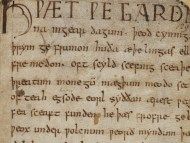 HǷÆT ǷE GARD
na ingear dagum. þeod cyning
þrym ge frunon huða æþelingas ell
fre medon. oft scyld scefing sceaþe
þreatum monegū mægþum meodo se
of teah egsode eorl syððan ærest ƿe
sceaft funden he þæs frofre ge
ƿeox under ƿolcnum ƿeorð myndum